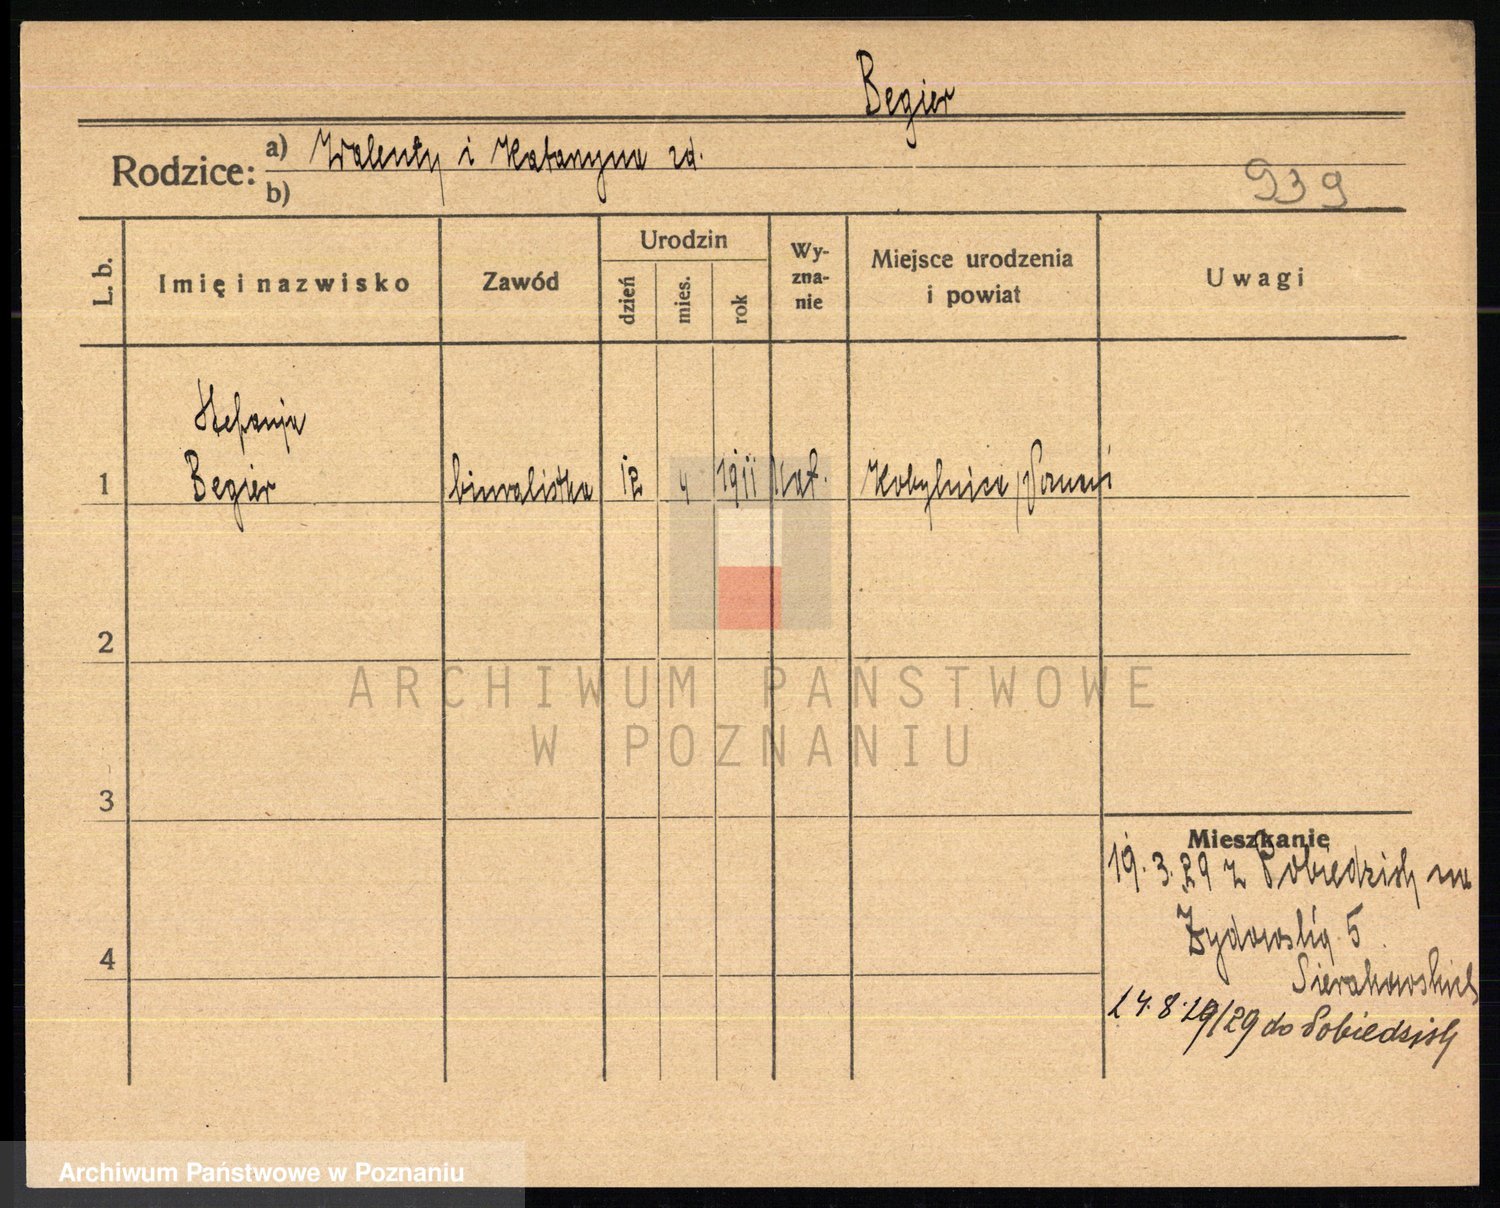 Begier
Rodzice: a) Walenty i Katarzyna zd.
b)
939
L. b.
Imię i nazwisko
Zawód
Urodzin
dzień
mies.
rok
Wy-
zna-
nie
Miejsce urodzenia
i powiat
Uwagi
Stefanja
1 Begier biuralistka 12 4 1911 kat. Kobylnica, Poznań
2
3
4
Mieszkanie
19.3.29 z Pobiedzisk na
Żydowską 5
Sierakowskich
24.8.29/29 do Pobiedzisk
ARCHIWUM PAŃSTWOWE
W POZNANIU
Archiwum Państwowe w Poznaniu